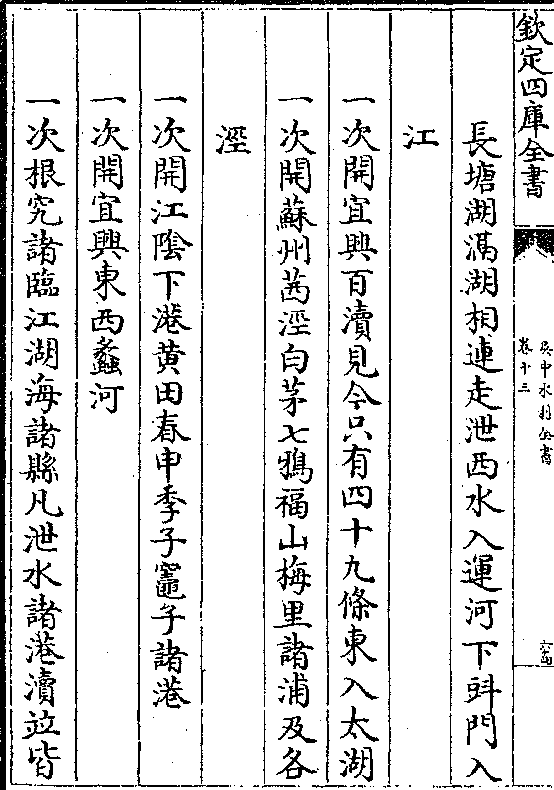 欽定四庫全書
吳中水利全書
卷十三
長塘湖滆湖相連走泄西水入運河下斗門入
江
一次開宜興百瀆見今只有四十九條東入太湖
一次開蘇州茜涇白茅七鴉福山梅里諸浦及各
涇
一次開江陰下港黄田春申季子竈子諸港
一次開宜興東西蠡河
一次根究諸臨江湖海諸縣凡泄水諸港瀆竝皆